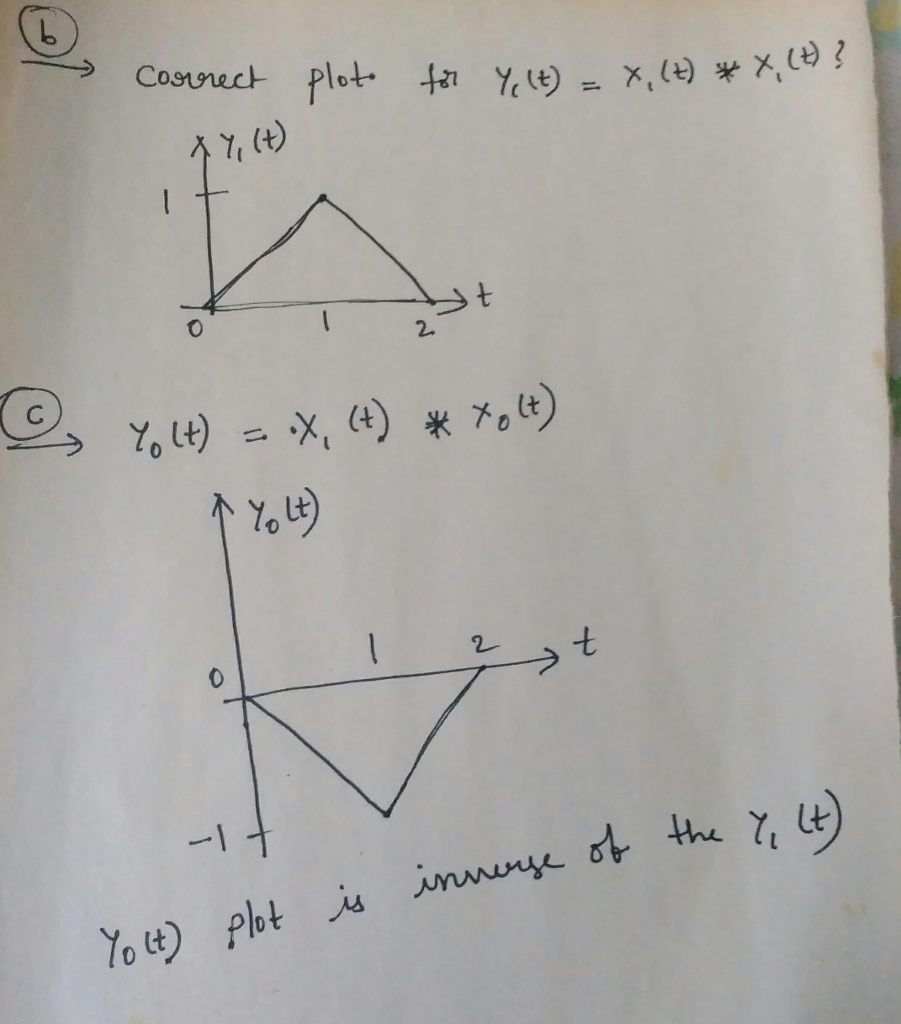 b
Correct plot for Y₁(t) = X₁(t) * X₁(t) ?
Y₁(t)
1
t
0 1 2
c
Y₀(t) = X₁(t) * X₀(t)
Y₀(t)
1 2 t
0
-1
Y₀(t) plot is inverse of the Y₁(t)